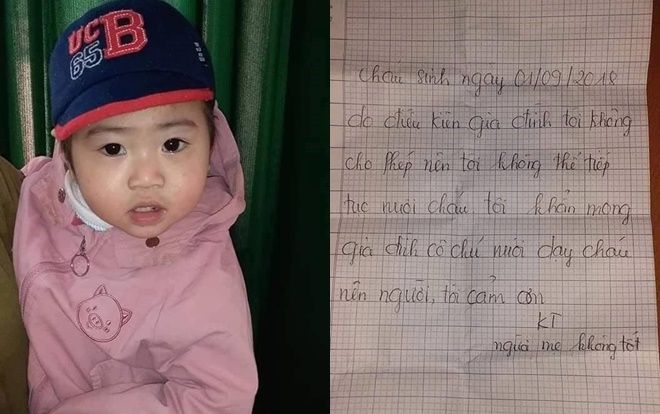 UCB
65
Cháu sinh ngày 01/09/2018
do điều kiện gia đình tôi không
cho phép nên tôi không thể tiếp
tục nuôi cháu tôi khẩn mong
gia đình cô chú nuôi dạy cháu
nên người, tôi cảm ơn
KT
người mẹ không tốt